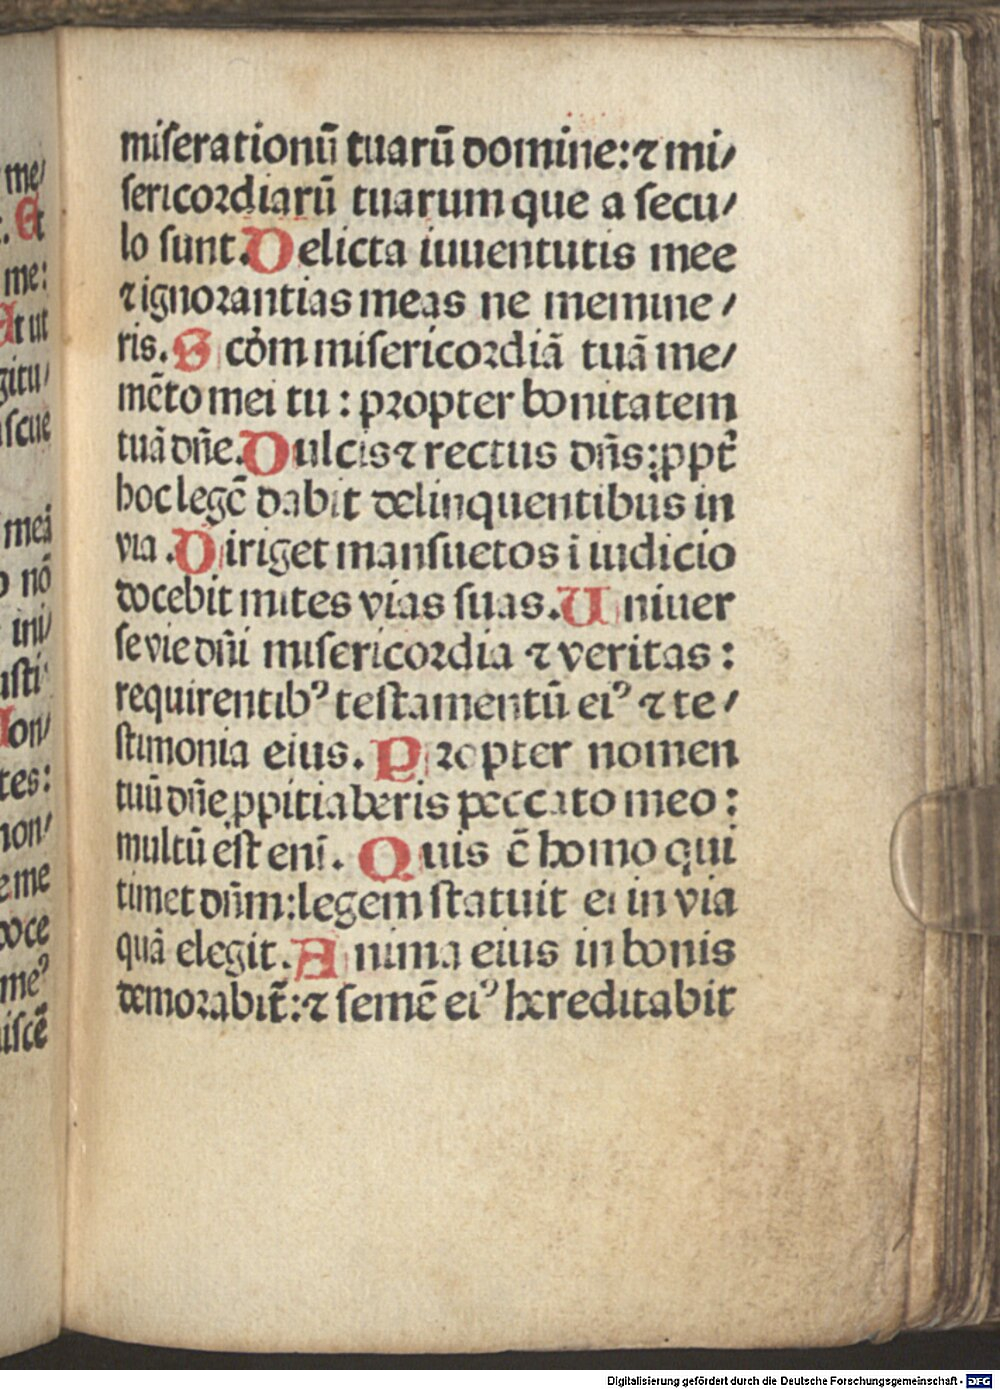 me/
. Et
me:
At ut
gitu/
ſcue
meā
nō
ini/
uſti
Non/
tes:
non/
e me
doce
meꝰ
iſcē
miſerationū tuarū domine: ⁊ mi/
ſericoꝛdiarū tuarum que a ſecu/
lo ſunt. Delicta iuuentutis mee
⁊ ignoꝛantias meas ne memine/
ris. S cōm miſericoꝛdiā tuā me/
mēto mei tu : pꝛopter bonitatem
tuā dn̄e. Dulcis ⁊ rectus dn̄s: ꝓpt̄
hoc legē dabit delinquentibus in
via . Diriget manſuetos ī iudicio
docebit mites vias ſuas. Uniuer
ſe vie dn̄i miſericoꝛdia ⁊ veritas :
requirentibꝰ teſtamentū eiꝰ ⁊ te/
ſtimonia eius. Pꝛopter nomen
tuū dn̄e ꝓpitiaberis peccato meo :
multū eſt enī. Quis ē homo qui
timet dn̄m: legem ſtatuit ei in via
quā elegit. Anima eius in bonis
demoꝛabit̄: ⁊ ſemē eiꝰ hereditabit
Digitalisierung gefördert durch die Deutsche Forschungsgemeinschaft - DFG